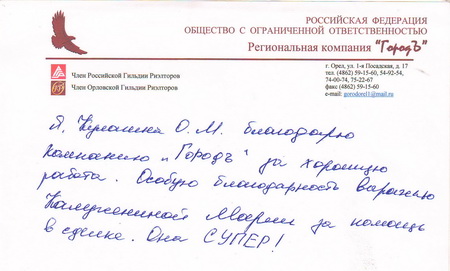 РОССИЙСКАЯ ФЕДЕРАЦИЯ
ОБЩЕСТВО С ОГРАНИЧЕННОЙ ОТВЕТСТВЕННОСТЬЮ
Региональная компания "ГородЪ"
Член Российской Гильдии Риэлторов
Член Орловской Гильдии Риэлторов
г. Орел, ул. 1-я Посадская, д. 17
тел. (4862) 59-15-60, 54-92-54,
74-00-74, 75-22-67
факс (4862) 59-15-60
e-mail: gorodorel1@mail.ru
Я, О.М. благодарю
компанию „ГородЪ" за хорошую
работа. Особую благодарность выражаю
Марии за помощь
в сделке. Она СУПЕР!